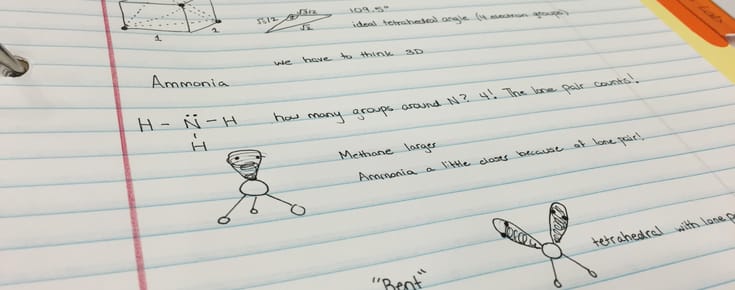 109.5°
√3/2
√3/2
√2
ideal tetrahedral angle (4 electron groups)
1
we have to think 3D
Ammonia
H - N̈ - H
H
how many groups around N? 4! The lone pair counts!
Methane larger
Ammonia a little closer because of lone pair!
tetrahedral with lone
"Bent"